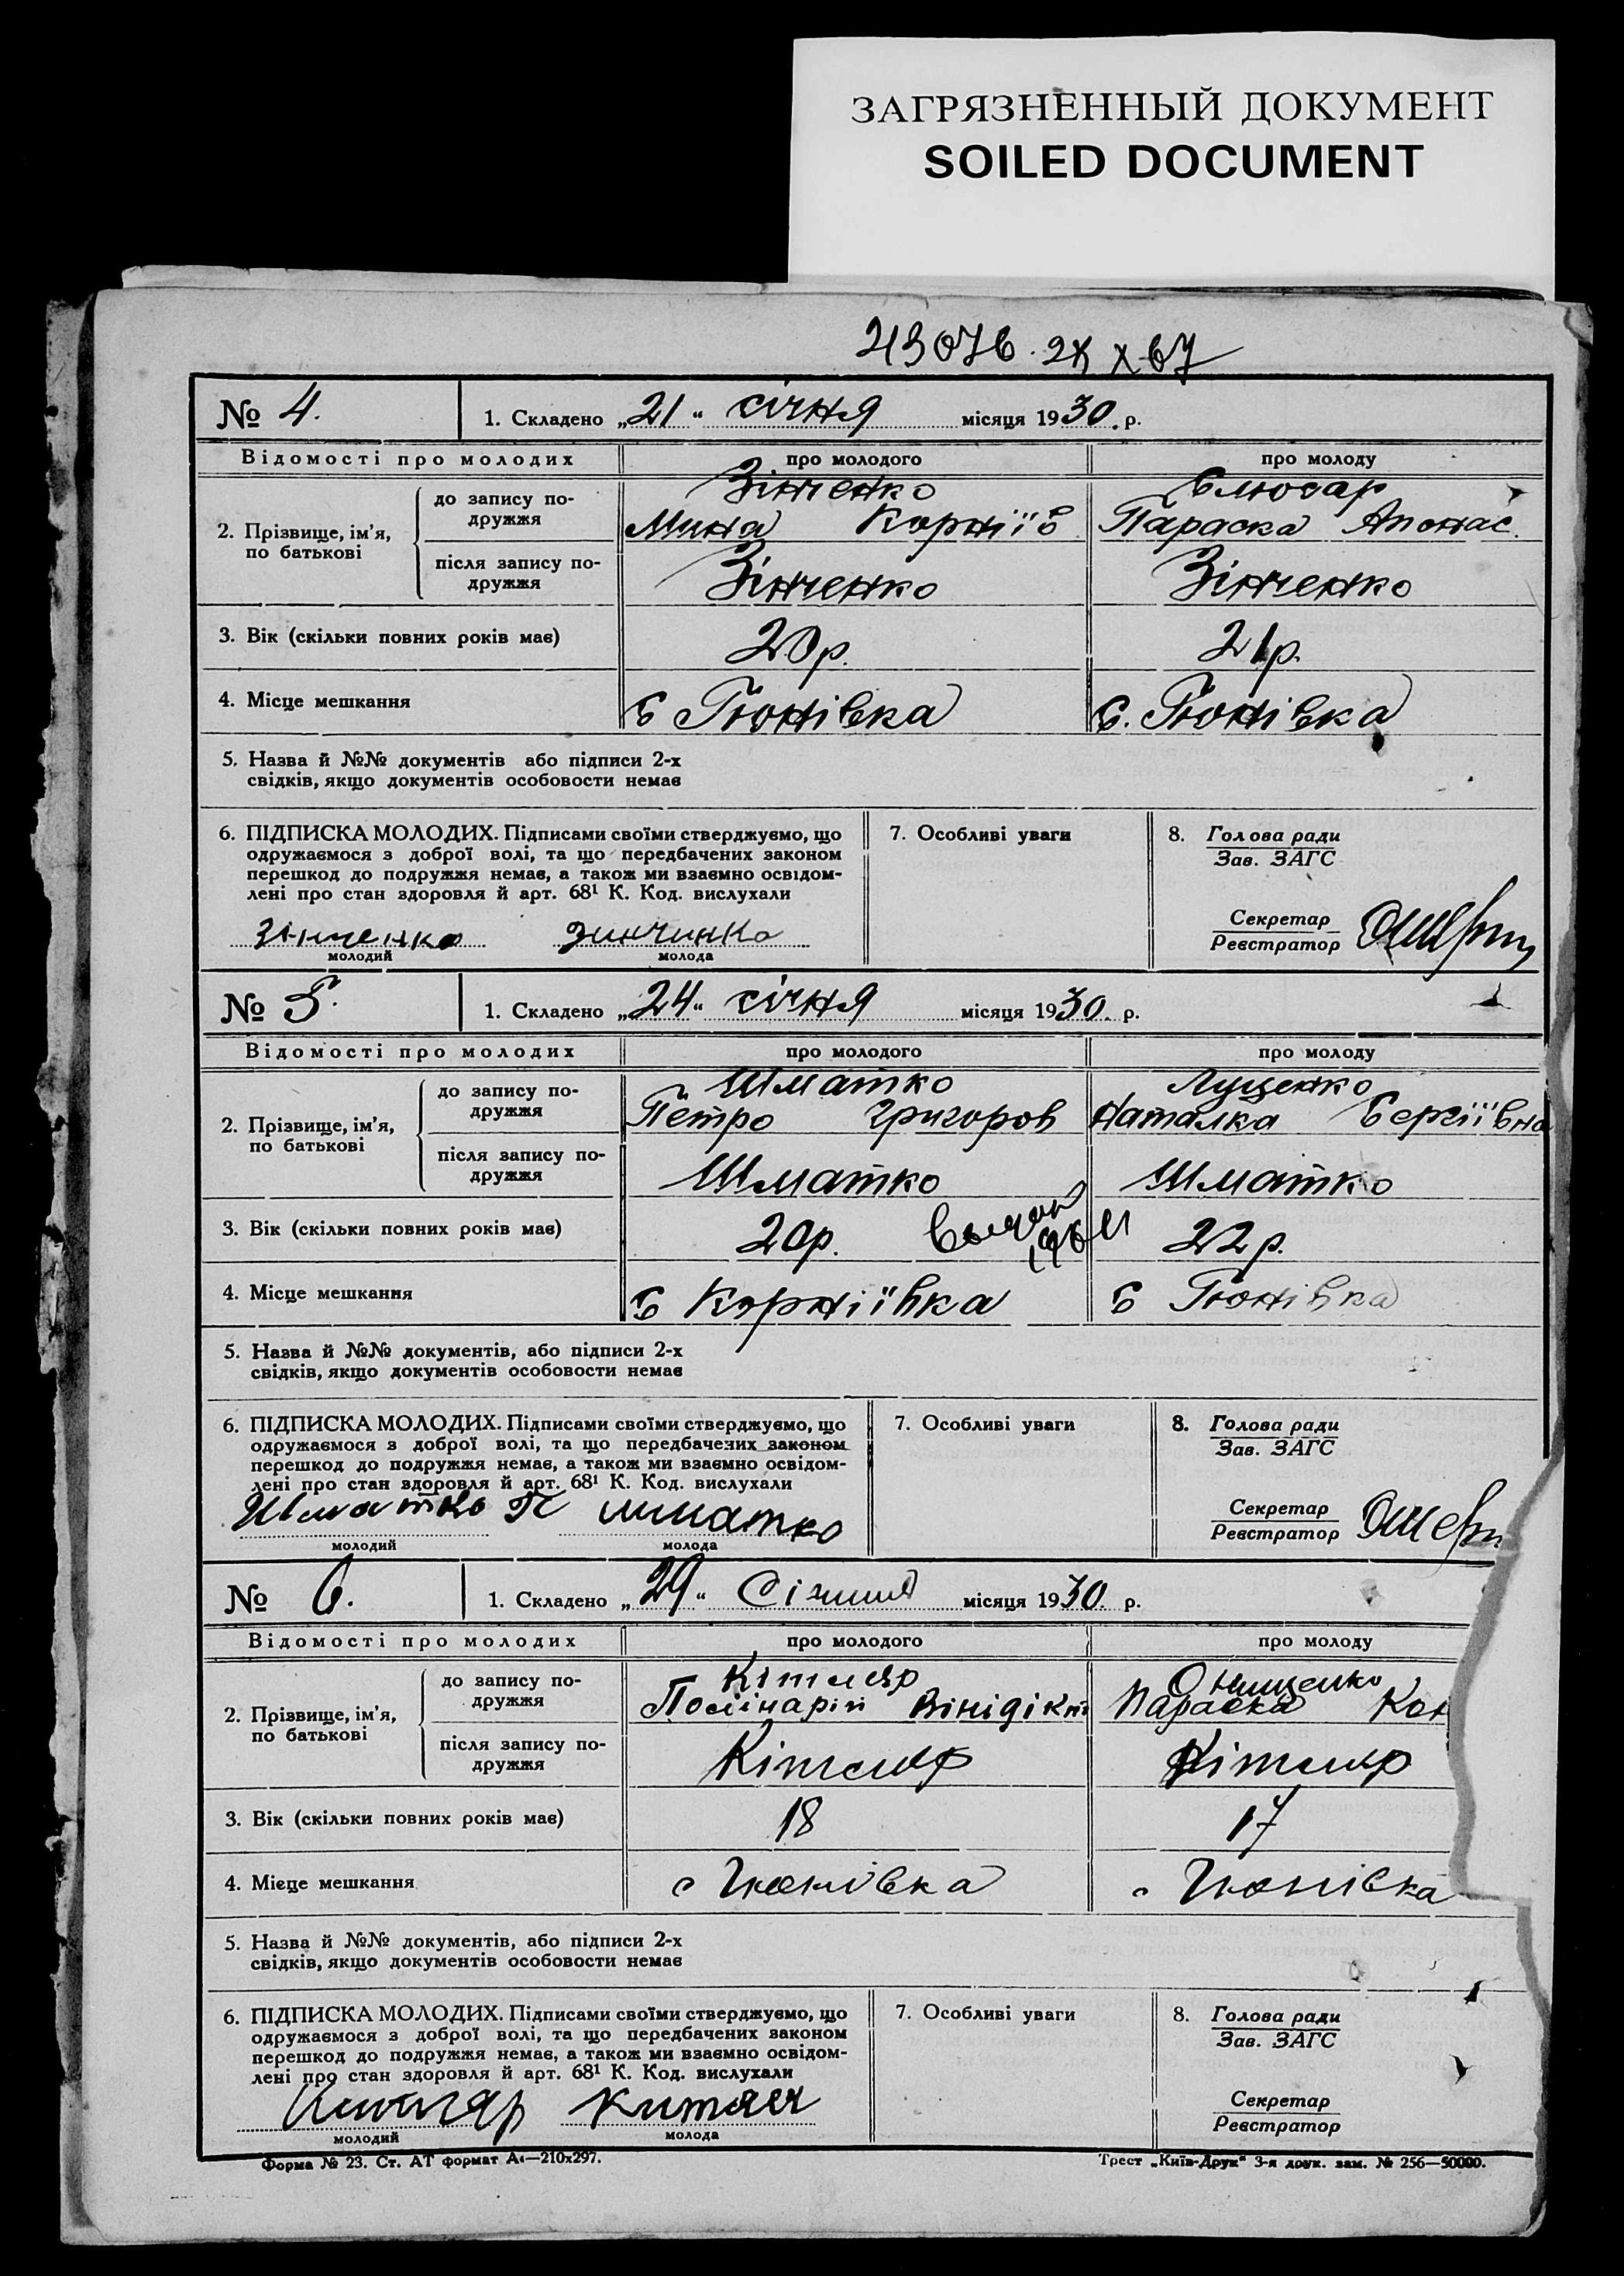 ЗАГРЯЗНЕННЫЙ ДОКУМЕНТ
SOILED DOCUMENT
№ 4. 1. Складено „21“ січня місяця 1930. р.
Відомості про молодих про молодого про молоду
2. Прізвище, ім'я, по батькові
до запису подружжя
Зінченко
Мина Корніів
Слюсар
Параска Апонас.
після запису подружжя
Зінченко Зінченко
3. Вік (скільки повних років має) 20р. 21р.
4. Місце мешкання С Гюнівка С. Гюнівка
5. Назва й №№ документів або підписи 2-х
свідків, якщо документів особовости немає
6. ПІДПИСКА МОЛОДИХ. Підписами своїми стверджуємо, що
одружаємося з доброї волі, та що передбачених законом
перешкод до подружжя немає, а також ми взаємно освідом-
лені про стан здоровля й арт. 68¹ К. Код. вислухали
Зінченко зинчинко
молодий молода
7. Особливі уваги
8. Голова ради
Зав. ЗАГС
Секретар
Реєстратор
№ 5. 1. Складено „24“ січня місяця 1930. р.
Відомості про молодих про молодого про молоду
2. Прізвище, ім'я, по батькові
до запису подружжя
Шматко
Петро Григоров
Лущенко
Наталка Сергіївна
після запису подружжя
Шматко Шматко
3. Вік (скільки повних років має) 20р. 22р.
4. Місце мешкання С Корніївка С Гюнівка
5. Назва й №№ документів, або підписи 2-х
свідків, якщо документів особовости немає
6. ПІДПИСКА МОЛОДИХ. Підписами своїми стверджуємо, що
одружаємося з доброї волі, та що передбачених законом
перешкод до подружжя немає, а також ми взаємно освідом-
лені про стан здоровля й арт. 68¹ К. Код. вислухали
Шматко П шматко
молодий молода
7. Особливі уваги
8. Голова ради
Зав. ЗАГС
Секретар
Реєстратор
№ 6. 1. Складено „29“ Січння місяця 1930. р.
Відомості про молодих про молодого про молоду
2. Прізвище, ім'я, по батькові
до запису подружжя
Кітляр
Полінарій Вінідікт
Онищенко
Параска Кон
після запису подружжя
Кітляр Кітляр
3. Вік (скільки повних років має) 18 17
4. Місце мешкання с Гюнівка с Гюнівка
5. Назва й №№ документів, або підписи 2-х
свідків, якщо документів особовости немає
6. ПІДПИСКА МОЛОДИХ. Підписами своїми стверджуємо, що
одружаємося з доброї волі, та що передбачених законом
перешкод до подружжя немає, а також ми взаємно освідом-
лені про стан здоровля й арт. 68¹ К. Код. вислухали
молодий молода
7. Особливі уваги
8. Голова ради
Зав. ЗАГС
Секретар
Реєстратор
Форма № 23. Ст. АТ формат А4—210х297. Трест „Київ-Друк“ 3-я друк. зам. № 256—50000.